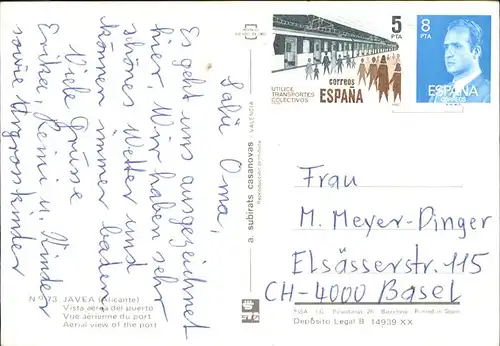 Salü Oma,
Es geht uns ausgezeichnet
hier, Wir haben sehr
schönes Wetter und
können immer baden
Viele Grüsse
Erika, Reini u. Kinder
sowie Urgrosskinder
N.º 73 JAVEA (Alicante)
Vista aérea del puerto
Vue aérienne du port
Aerial view of the port
a. subirats casanovas - VALENCIA
5
PTA
UTILICE
TRANSPORTES
COLECTIVOS
correos
ESPAÑA
8
PTA
ESPAÑA
CORREOS
Frau
M. Meyer-Dinger
Elsässerstr. 115
CH-4000 Basel
Barcelona - Printed in Spain
Depósito Legal B 14939 XX